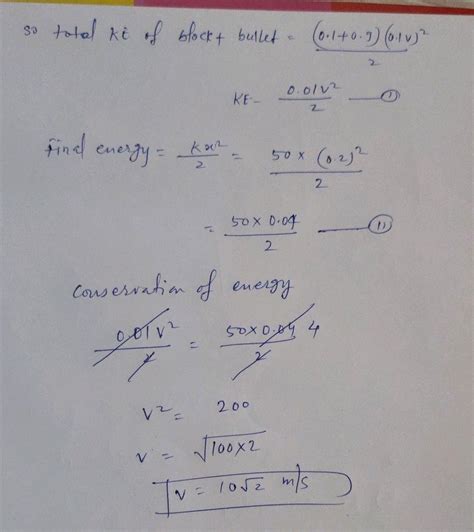 so total KE of block + bullet = (0.1+0.9)(0.1v)² / 2
KE = 0.01v² / 2 — (i)
final energy = kx² / 2 = 50 × (0.2)² / 2
= 50 × 0.04 / 2 — (ii)
conservation of energy
0.01 v² / 2 = 50×0.04 / 2 4
v² = 200
v = √100×2
v = 10√2 m/s